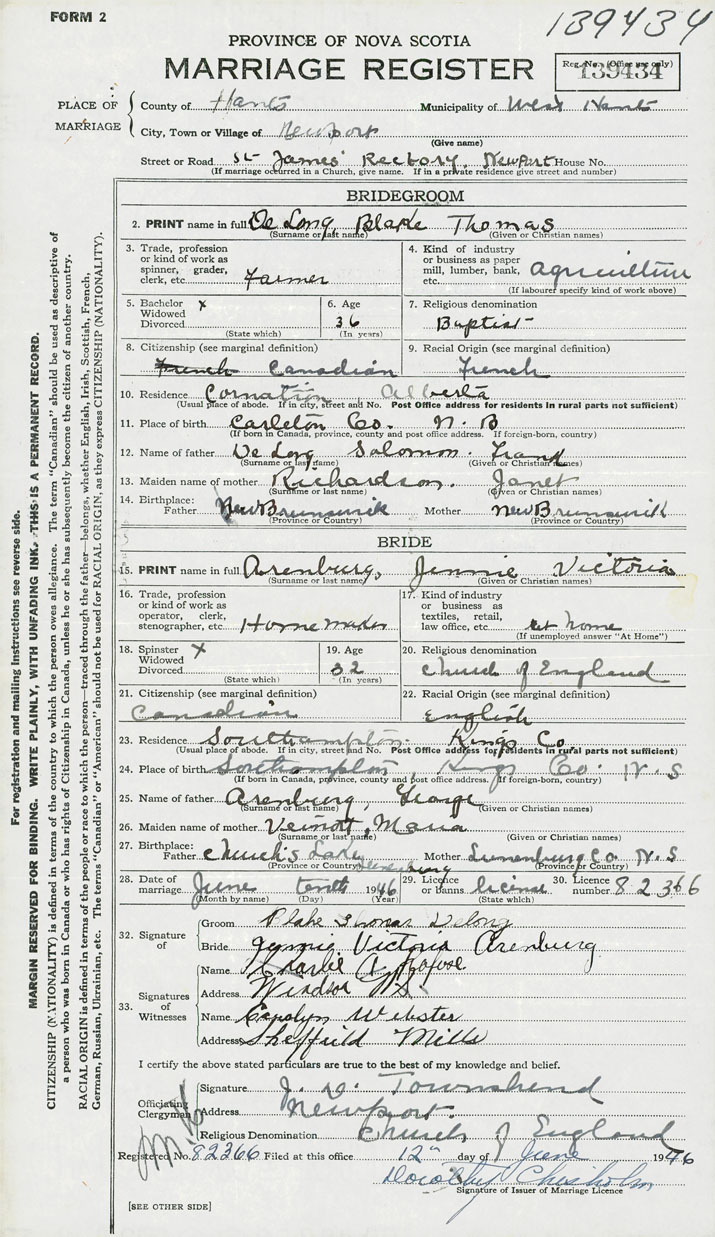 FORM 2
139434
PROVINCE OF NOVA SCOTIA
MARRIAGE REGISTER
Reg. No. (Office use only)
139434
PLACE OF MARRIAGE
County of Hants Municipality of West Hants
City, Town or Village of Newport
(Give name)
Street or Road St James' Rectory, Newport House No.
(If marriage occurred in a Church, give name. If in a private residence give street and number)
BRIDEGROOM
2. PRINT name in full De Long, Blake Thomas
(Surname or last name) (Given or Christian names)
3. Trade, profession or kind of work as spinner, grader, clerk, etc. Farmer
4. Kind of industry or business as paper mill, lumber, bank, etc. Agriculture
(If labourer specify kind of work above)
5. Bachelor x
Widowed
Divorced
(State which)
6. Age
36
(In years)
7. Religious denomination
Baptist
8. Citizenship (see marginal definition)
French Canadian
9. Racial Origin (see marginal definition)
French
10. Residence Alberta
(Usual place of abode. If in city, street and No. Post Office address for residents in rural parts not sufficient)
11. Place of birth Carleton Co. N. B
(If born in Canada, province, county and post office address. If foreign-born, country)
12. Name of father De Long Solomon
(Surname or last name) (Given or Christian names)
13. Maiden name of mother Richardson. Janet
(Surname or last name) (Given or Christian names)
14. Birthplace:
Father New Brunswick Mother New Brunswick
(Province or Country) (Province or Country)
BRIDE
15. PRINT name in full Arenburg, Jennie Victoria
(Surname or last name) (Given or Christian names)
16. Trade, profession or kind of work as operator, clerk, stenographer, etc. Home maker
17. Kind of industry or business as textiles, retail, law office, etc. at home
(If unemployed answer "At Home")
18. Spinster x
Widowed
Divorced
(State which)
19. Age
32
(In years)
20. Religious denomination
Church of England
21. Citizenship (see marginal definition)
Canadian
22. Racial Origin (see marginal definition)
English
23. Residence Southampton Kings Co
(Usual place of abode. If in city, street and No. Post Office address for residents in rural parts not sufficient)
24. Place of birth Southampton Kings Co. N. S
(If born in Canada, province, county and post office address. If foreign-born, country)
25. Name of father Arenburg, George
(Surname or last name) (Given or Christian names)
26. Maiden name of mother Veinott, Maria
(Surname or last name) (Given or Christian names)
27. Birthplace:
Father Mother Lunenburg Co N. S
(Province or Country) (Province or Country)
28. Date of marriage June tenth 1946
(Month by name) (Day) (Year)
29. Licence or banns license
(State which)
30. Licence number 82366
32. Signature of
Groom Blake Thomas Delong
Bride Jennie Victoria Arenburg
33. Signatures of Witnesses
Name Charlie A.
Address Windsor NS
Name Carolyn Webster
Address Sheffield Mills
I certify the above stated particulars are true to the best of my knowledge and belief.
Officiating Clergyman
Signature Townshend
Address Newport.
Religious Denomination Church of England
Registered No. 82366 Filed at this office 12th day of June 1946
Dorothy Chisholm
Signature of Issuer of Marriage Licence
[SEE OTHER SIDE]
For registration and mailing instructions see reverse side.
MARGIN RESERVED FOR BINDING. WRITE PLAINLY, WITH UNFADING INK, THIS IS A PERMANENT RECORD.
CITIZENSHIP (NATIONALITY) is defined in terms of the country to which the person owes allegiance. The term "Canadian" should be used as descriptive of
a person who was born in Canada or who has rights of Citizenship in Canada, unless he or she has subsequently become the citizen of another country.
RACIAL ORIGIN is defined in terms of the people or race to which the person—traced through the father—belongs, whether English, Irish, Scottish, French,
German, Russian, Ukrainian, etc. The terms "Canadian" or "American" should not be used for RACIAL ORIGIN, as they express CITIZENSHIP (NATIONALITY).